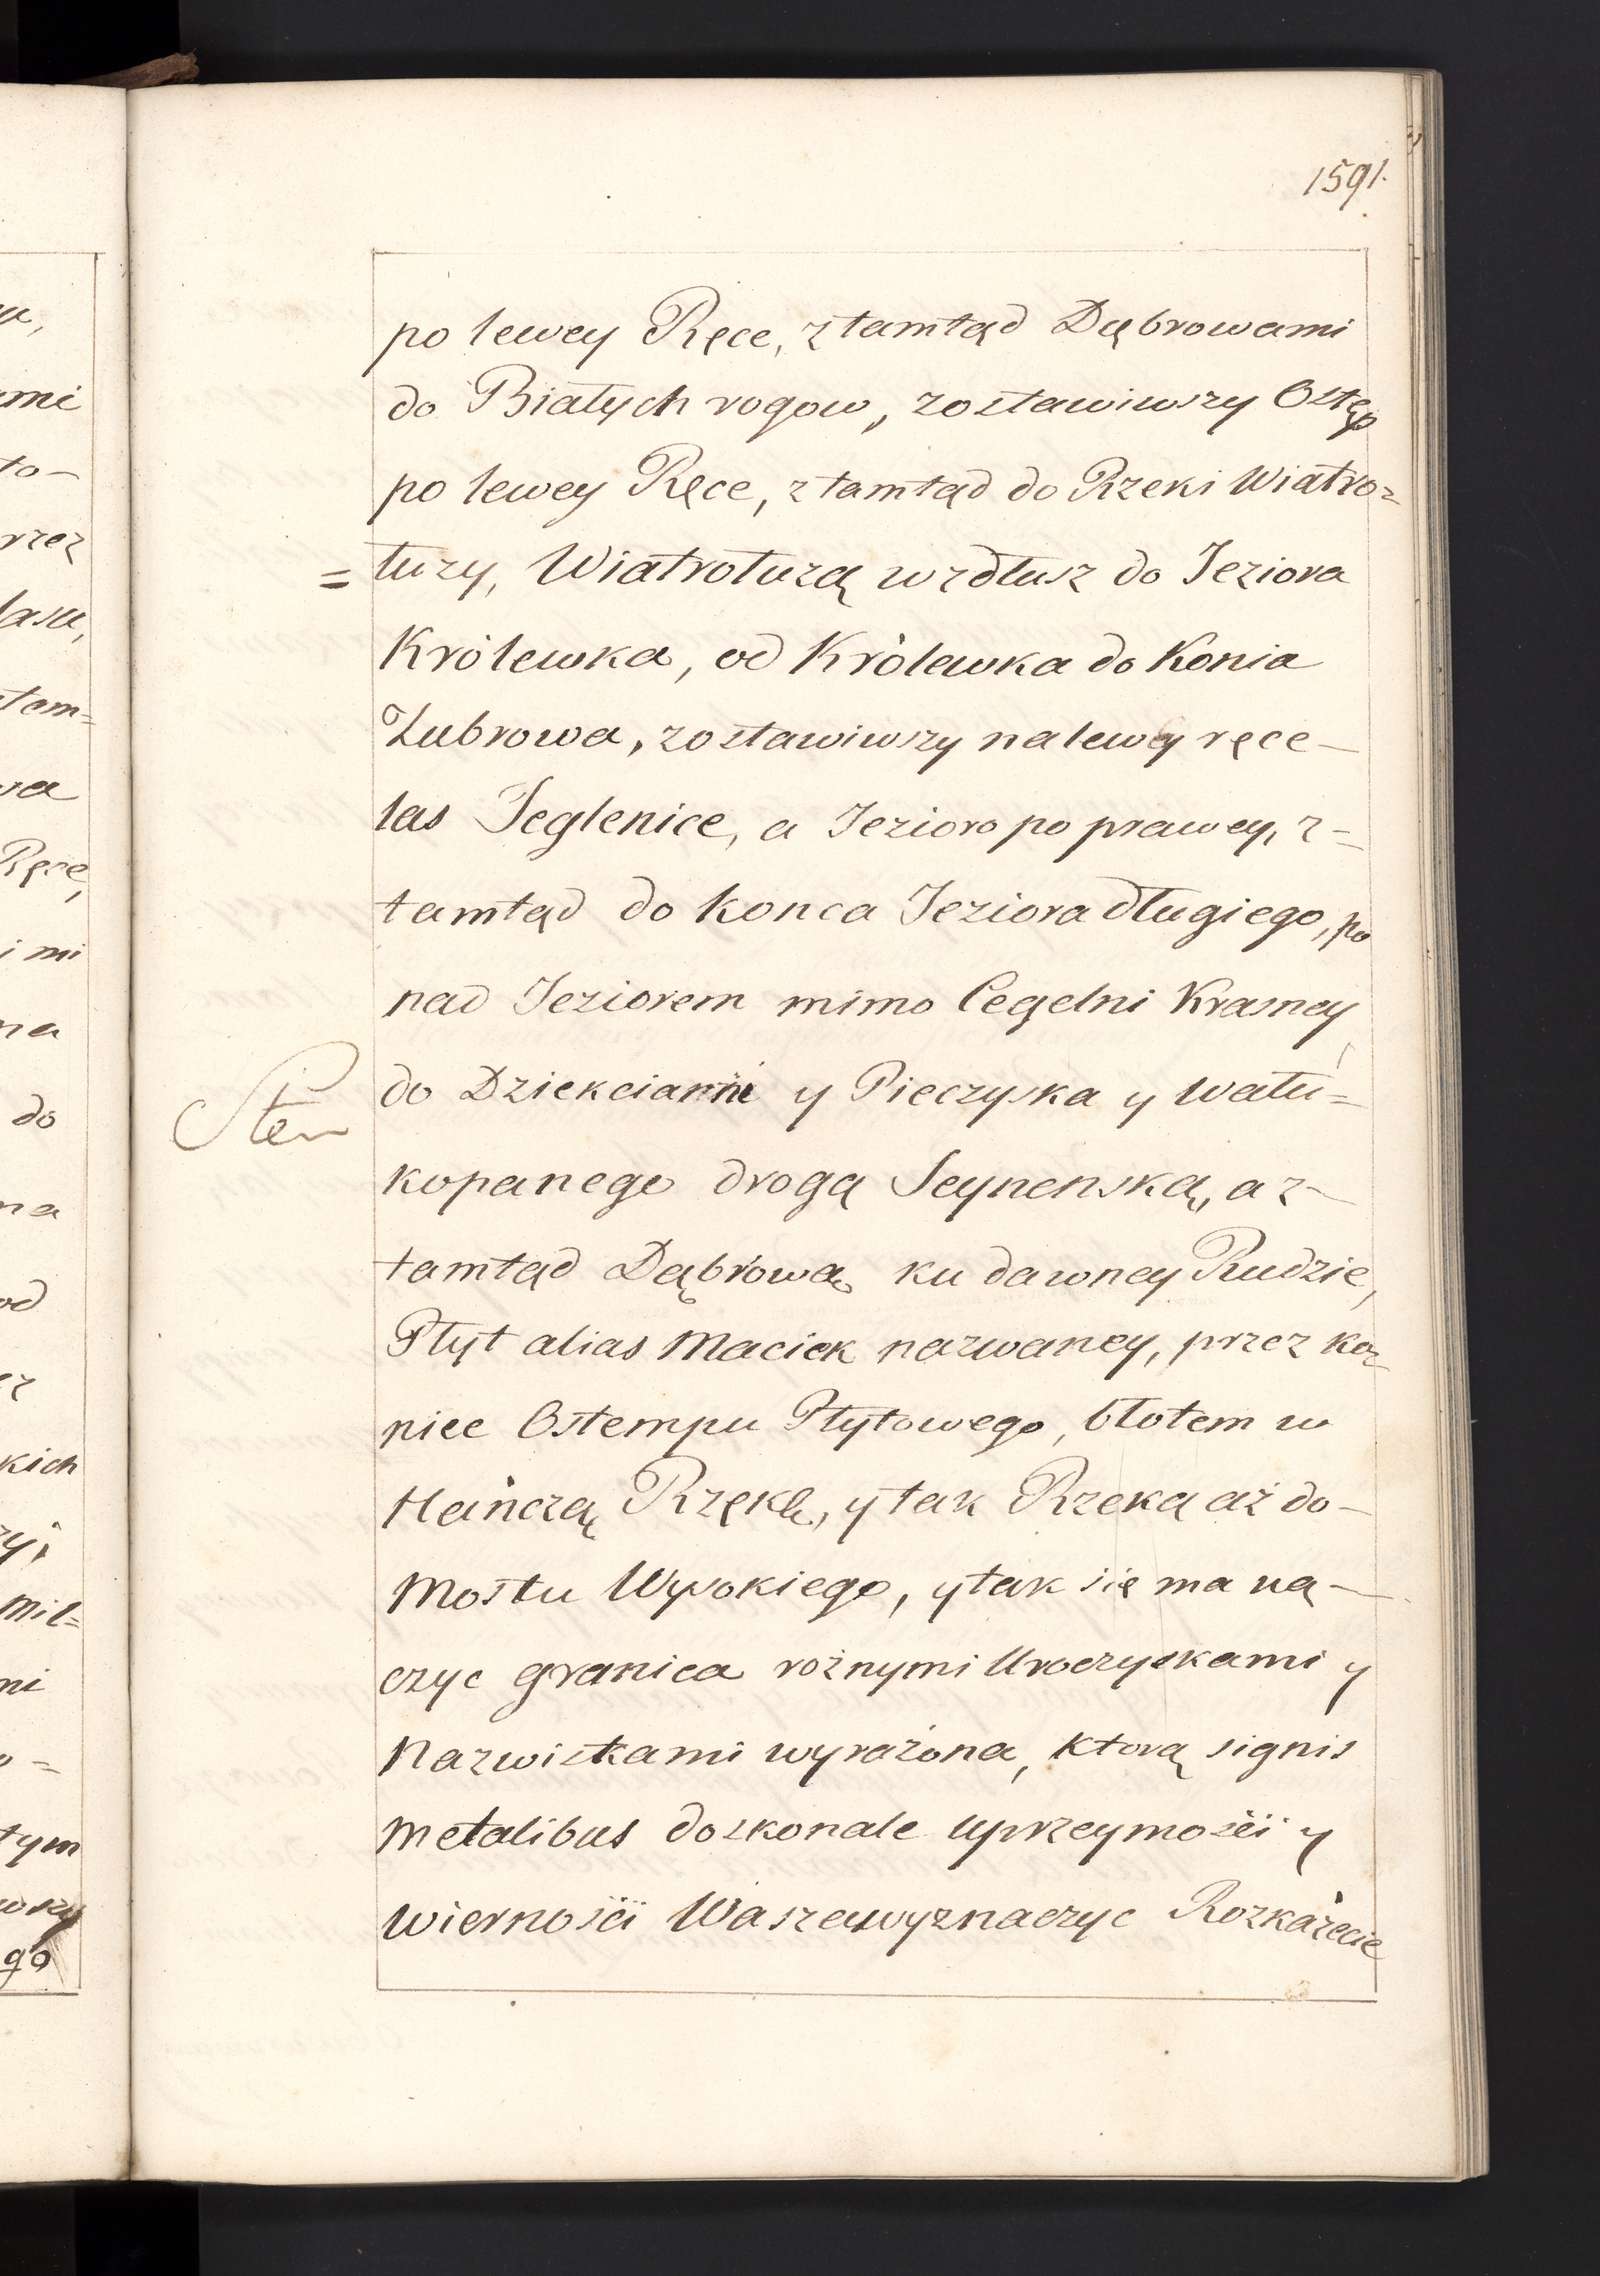 1591.
po lewey Ręce, ztamtąd Dąbrowami
do Białych rogow, zostawiwszy Ostęp
po lewey Ręce, ztamtąd do Rzeki Wiatro=
=łuzy, Wiatrołuzą wzdłusz do Jeziora
Królewka, od Królewka do Konia
Żubrowa, zostawiwszy na lewey ręce –
las Jeglenice, a Jezioro po prawey, z=
tamtąd do Konca Jeziora długiego, po
nad Jeziorem mimo Cegelni Krasney,
do Dziekciarni y Pieczyska y wału=
kopanego drogą Seynenską, a z –
tamtąd Dąbrową ku dawney Rudzie,
Płyt alias Maciek nazwaney, przez ko=
niec Ostempu Płytowego, błotem w
Hańczą Rzękę, y tak Rzeką aż do –
Mostu Wysokiego, y tak się ma na –
czyc granica rożnymi Uroczyskami y
Nazwiskami wyrażona, ktorą signis
Metalibus doskonale Uprzeymości y
wierności Wasze wyznaczyc Rozkażecie
u,
mi
to –
rzez
lasu,
tam=
wa
Ręce,
i mi
na
do
na
od
ez
kich
Mil=
ni
o =
tym
wszy
go